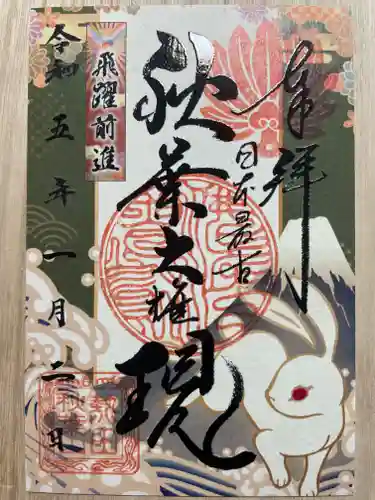 奉拝
日本最古
秋葉大権現
飛躍前進
令和五年一月二日